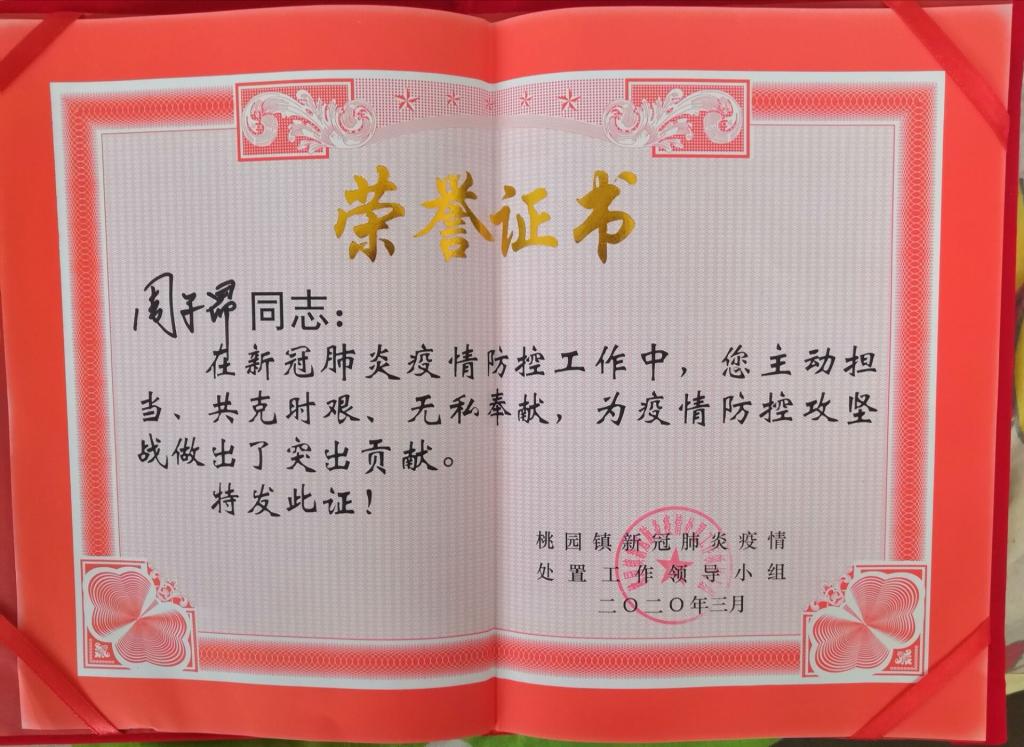 荣誉证书
周子昂同志：
在新冠肺炎疫情防控工作中，您主动担
当、共克时艰、无私奉献，为疫情防控攻坚
战做出了突出贡献。
特发此证！
桃园镇新冠肺炎疫情
处置工作领导小组
二〇二〇年三月